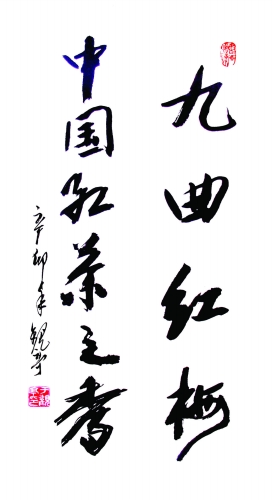 九曲红梅
中国红茶之秀
辛卯年 观琴